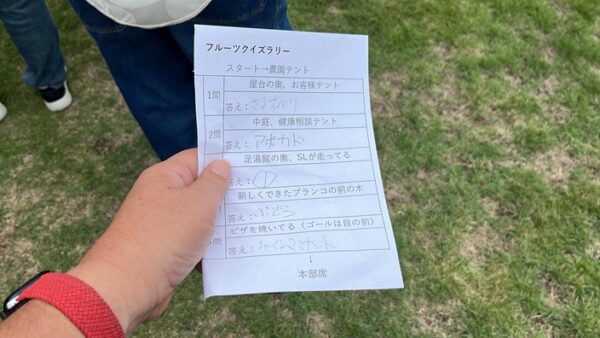 フルーツクイズラリー
スタート→農園テント
1問
屋台の奥、お客様テント
答え:さくらんぼ
2問
中庭、健康相談テント
答え:アボカド
足湯館の奥、SLが走ってる
答え:①
新しくできたブランコの前の木
問
答え:ぶどう
ピザを焼いてる（ゴールは目の前）
問
答え:シャインマスカット
↓
本部席